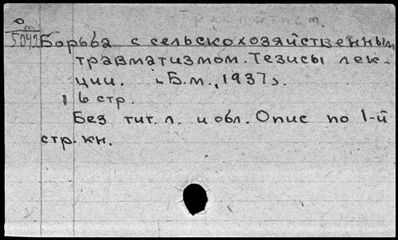 5042 Борьба с сельскохозяйственным
травматизмом. Тезисы лек-
ции. [Б.м., 1937].
6 стр.
Без тит. л. и обл. Опис по 1-й
стр. кн.